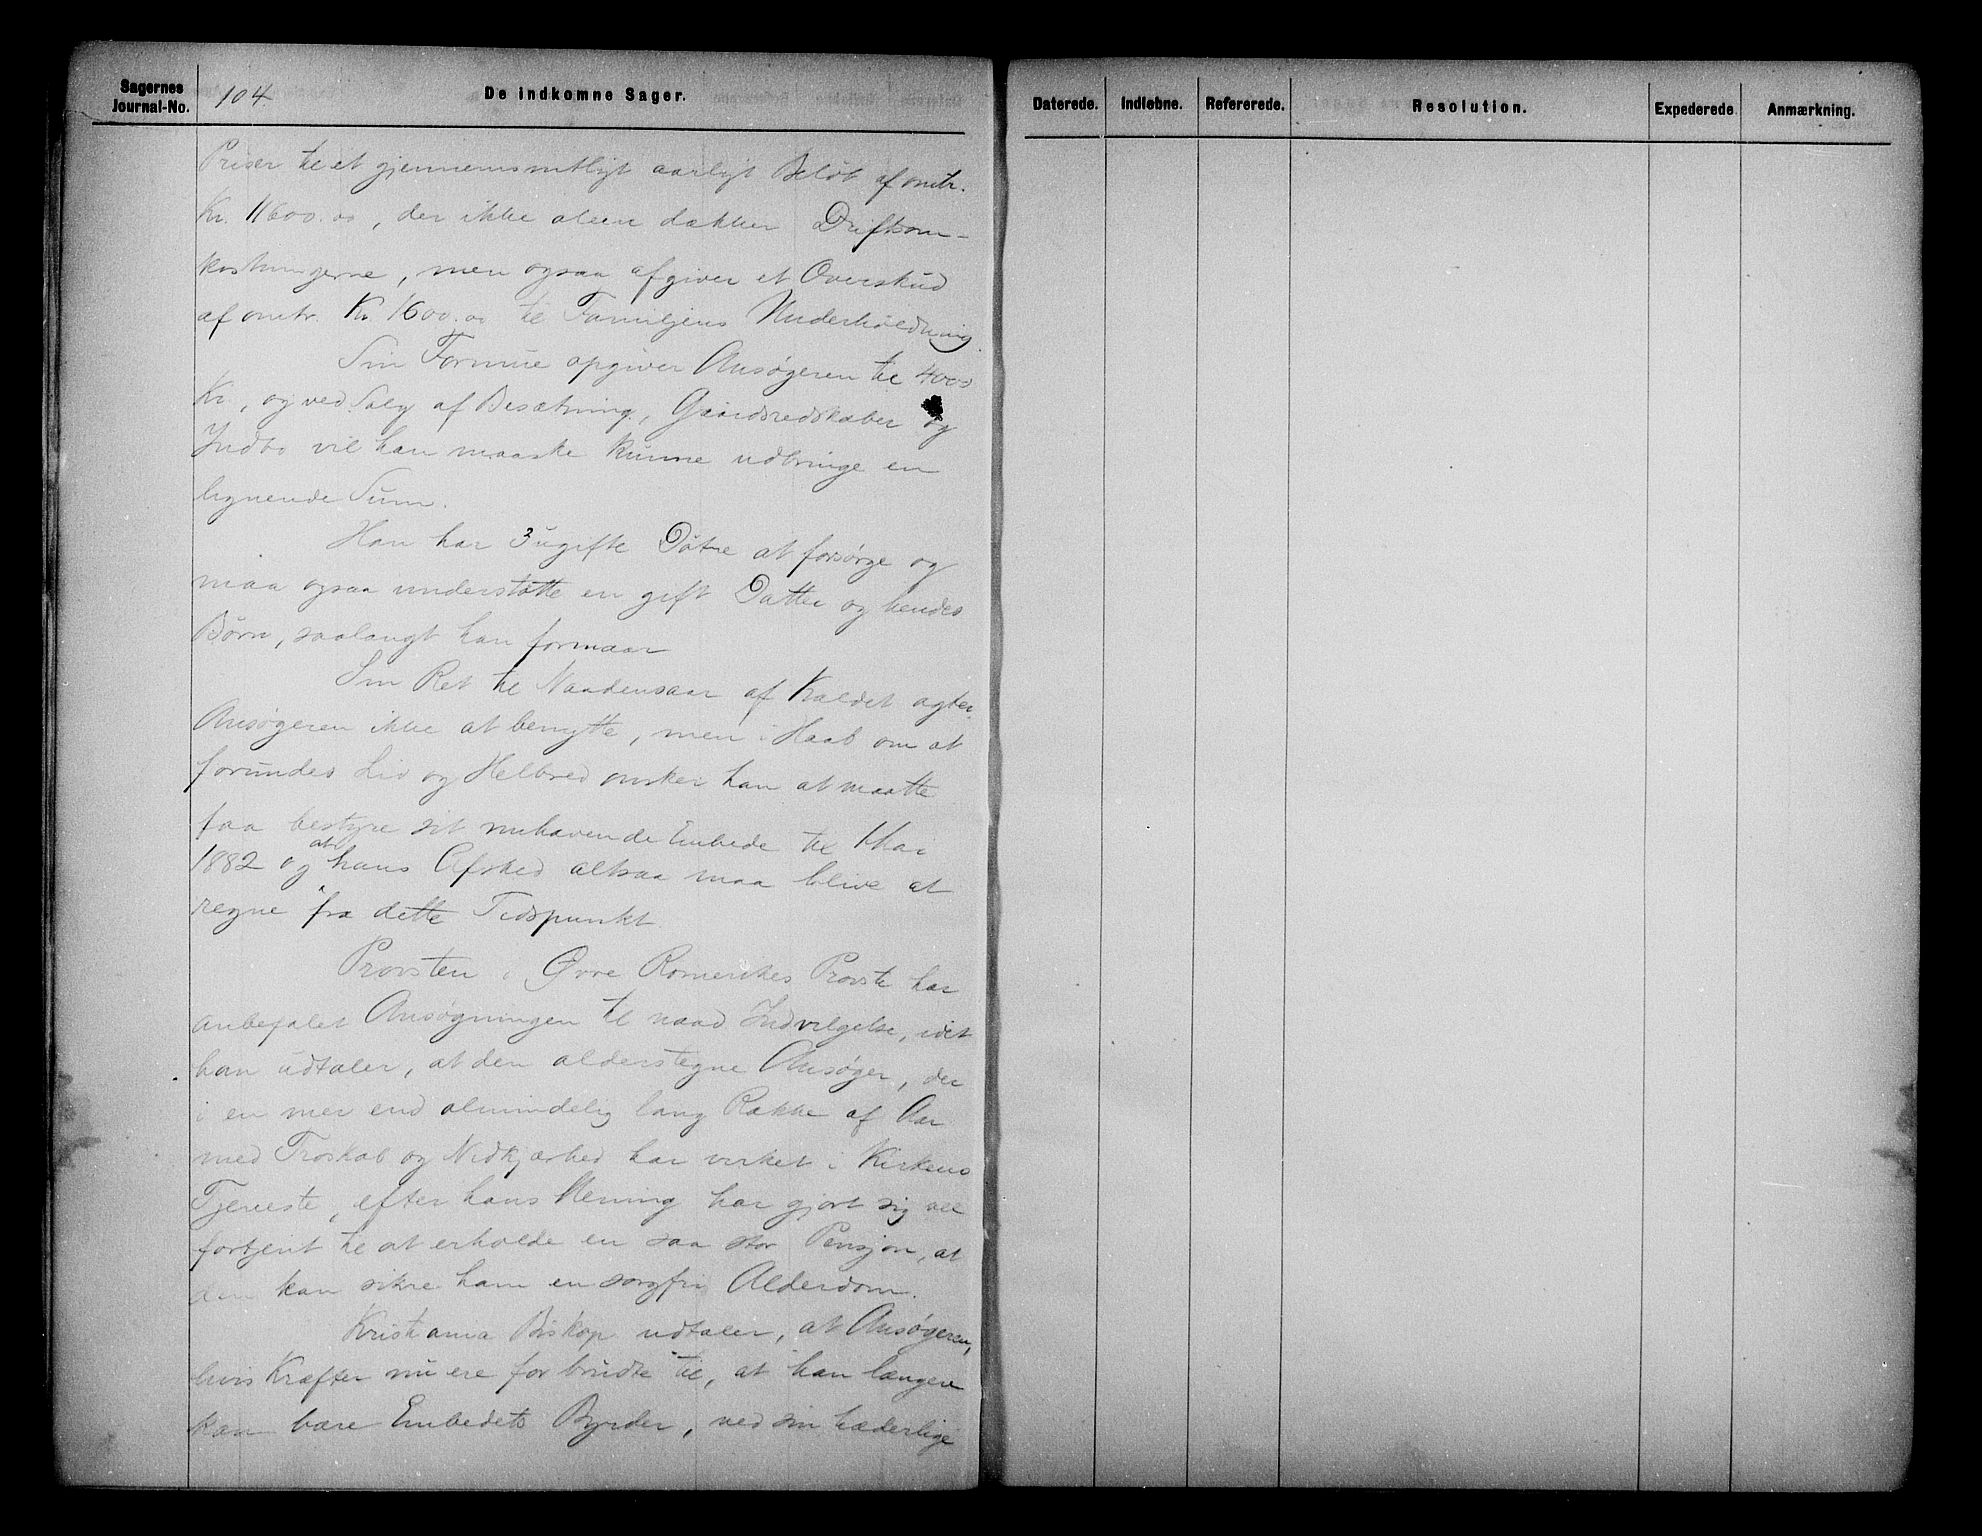 Sagernes
Journal-No.
104
De indkomne Sager.
Priser til et gjennemsnitligt aarligt Beløb af omtr.
Kr. 1600.00, der ikke aleen dækker Driftsom-
kostningerne, men ogsaa afgiver et Overskud
af omtr. Kr. 1600.00 til Familjens Underholdning.
Sin Formue opgiver Ansøgeren til 4000
Kr, og ved Salg af Besætning, Gaardsredskaber og
Indbo vil han maaske kunne udbringe en
lignende Sum.
Han har 3 ugifte Døtre at forsørge og
maa ogsaa understøtte en gift Datter og hendes
Børn, saalangt han formaar
Sin Ret til Naadensaar af Kaldet agter
Ansøgeren ikke at benytte, men i Haab om at
forundes Liv og Helbred ønsker han at maatte
faa bestyre sit nuhavende Embede til Mai
1882 og at hans Afsked altsaa maa blive at
regne fra dette Tidspunkt.
Provsten i Øvre Romerikes Provsti har
anbefalet Ansøgningen til naad Indvilgelse, idet
han udtaler, at den alderstegne Ansøger, der
i en mer end almindelig lang Række af Aar
med Troskab og Nidkjærhed har virket i Kirkens
Tjeneste, efter hans Mening har gjort sig vel
fortjent til at erholde en saa stor Pensjon, at
den kan sikre ham en sorgfri Alderdom.
Kristiania Biskop udtaler, at Ansøgeren,
hvis Kræfter nu ere for brudte til, at han længere
kan bære Embedets Byrder, ved sin hæderlige
Daterede.
Indløbne.
Refererede.
Resolution.
Expederede
Anmærkning.